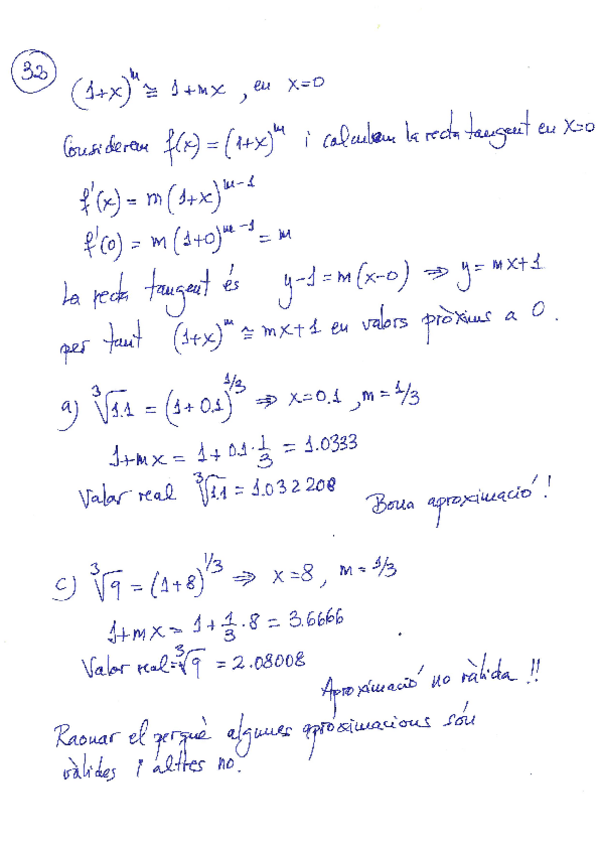 32
(1+x)^m ≅ 1+mx , en x=0
Considerem f(x) = (1+x)^m i calculem la recta tangent en x=0
f'(x) = m(1+x)^m-1
f'(0) = m(1+0)^m-1 = m
La recta tangent és y-1=m(x-0) ⇒ y=mx+1
per tant (1+x)^m ≅ mx+1 en valors pròxims a 0.
a) ∛1.1 = (1+0.1)^1/3 ⇒ x=0.1 , m=1/3
1+mx = 1+0.1·1/3 = 1.0333
Valor real ∛1.1 = 1.032208
Bona aproximació!
c) ∛9 = (1+8)^1/3 ⇒ x=8, m=1/3
1+mx = 1+1/3·8 = 3.6666
Valor real=∛9 = 2.08008
Aproximació no vàlida !!
Raonar el perquè algunes apróximacions són
vàlides i altres no.